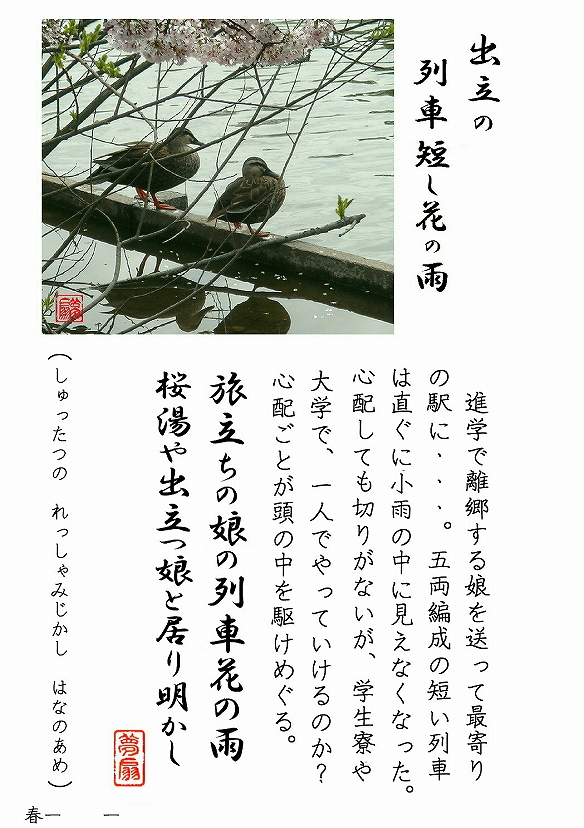 出立の
列車短し花の雨
進学で離郷する娘を送って最寄り
の駅に・・・。五両編成の短い列車
は直ぐに小雨の中に見えなくなった。
心配しても切りがないが、学生寮や
大学で、一人でやっていけるのか？
心配ごとが頭の中を駆けめぐる。
旅立ちの娘の列車花の雨
桜湯や出立つ娘と居り明かし
（しゅったつの　れっしゃみじかし　はなのあめ）
夢扇
夢扇
春一　　一